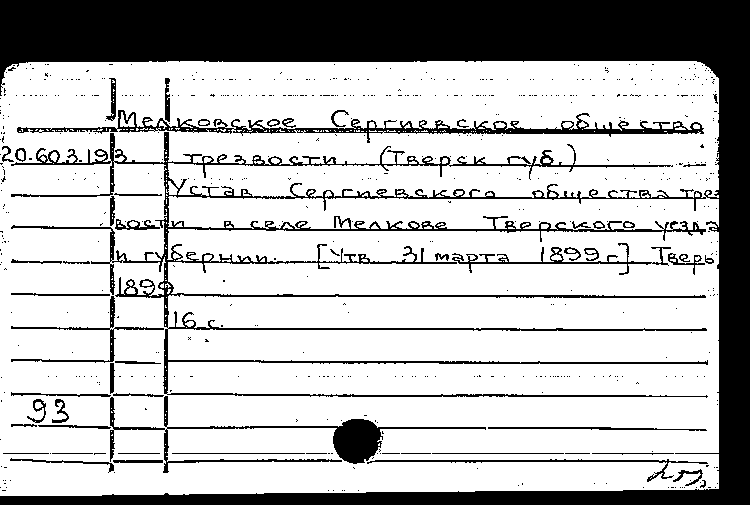 Мелковское Сергиевское общество
20.60.3.193. трезвости. (Тверск губ.)
Устав Сергиевского общества трез
вости в селе Мелкове Тверского уезда
и губернии. [Утв. 31 марта 1899 г]. Тверь,
1899.
16 с.
93